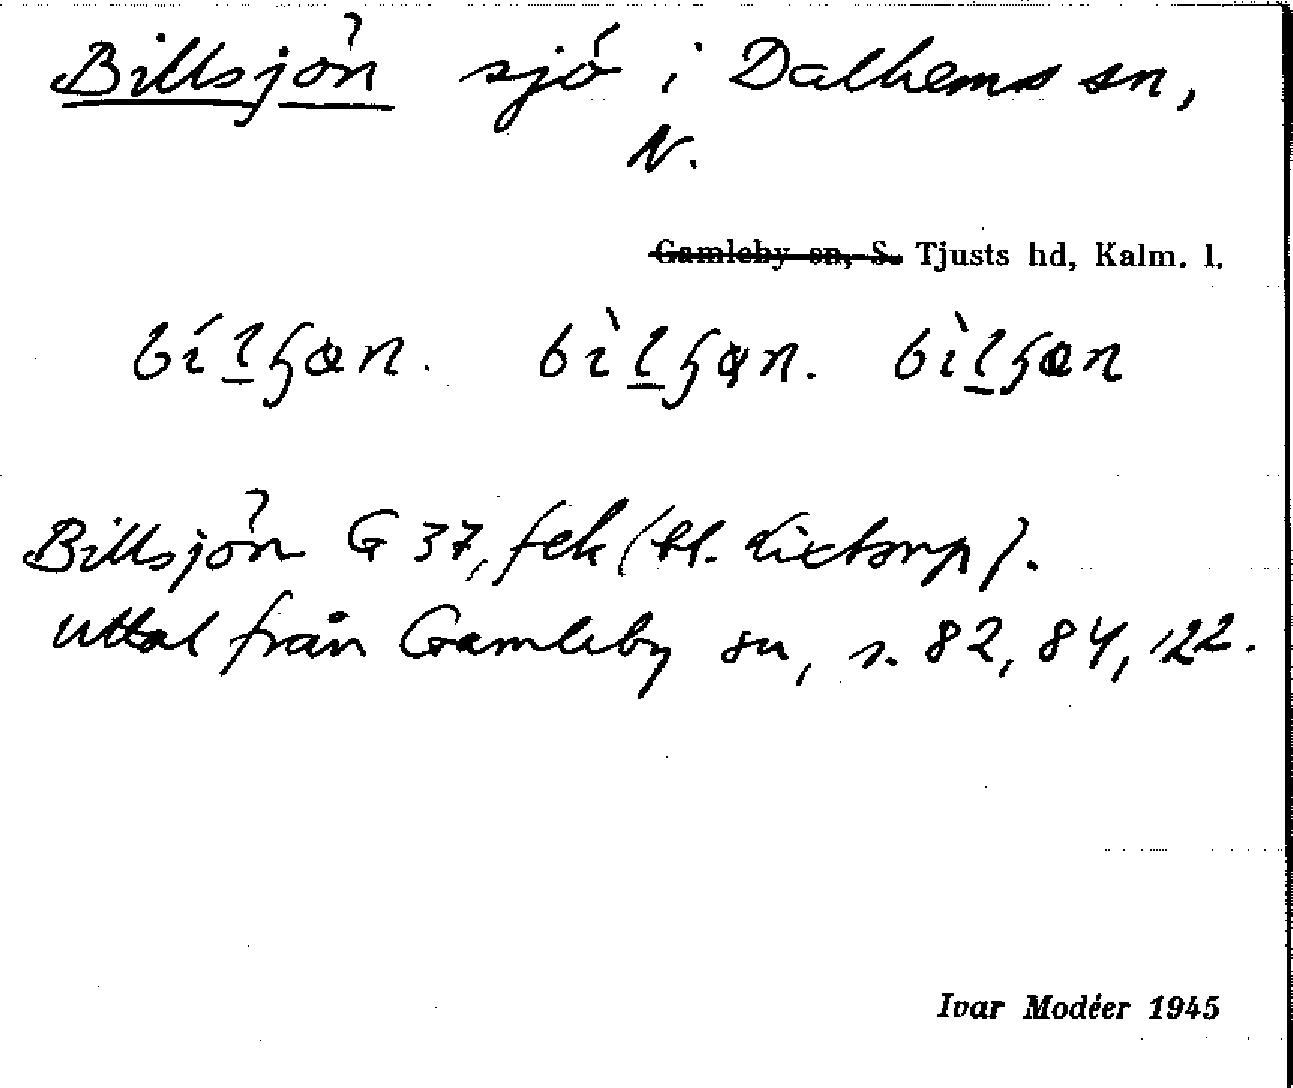 Billsjön sjö i Dalhems sn,
N.
Gamleby sn, S. Tjusts hd, Kalm. l.
Billsjön G 37, fek (bl. Lixtorp).
Uttal från Gamleby sn, s. 82, 84, 122.
Ivar Modéer 1945